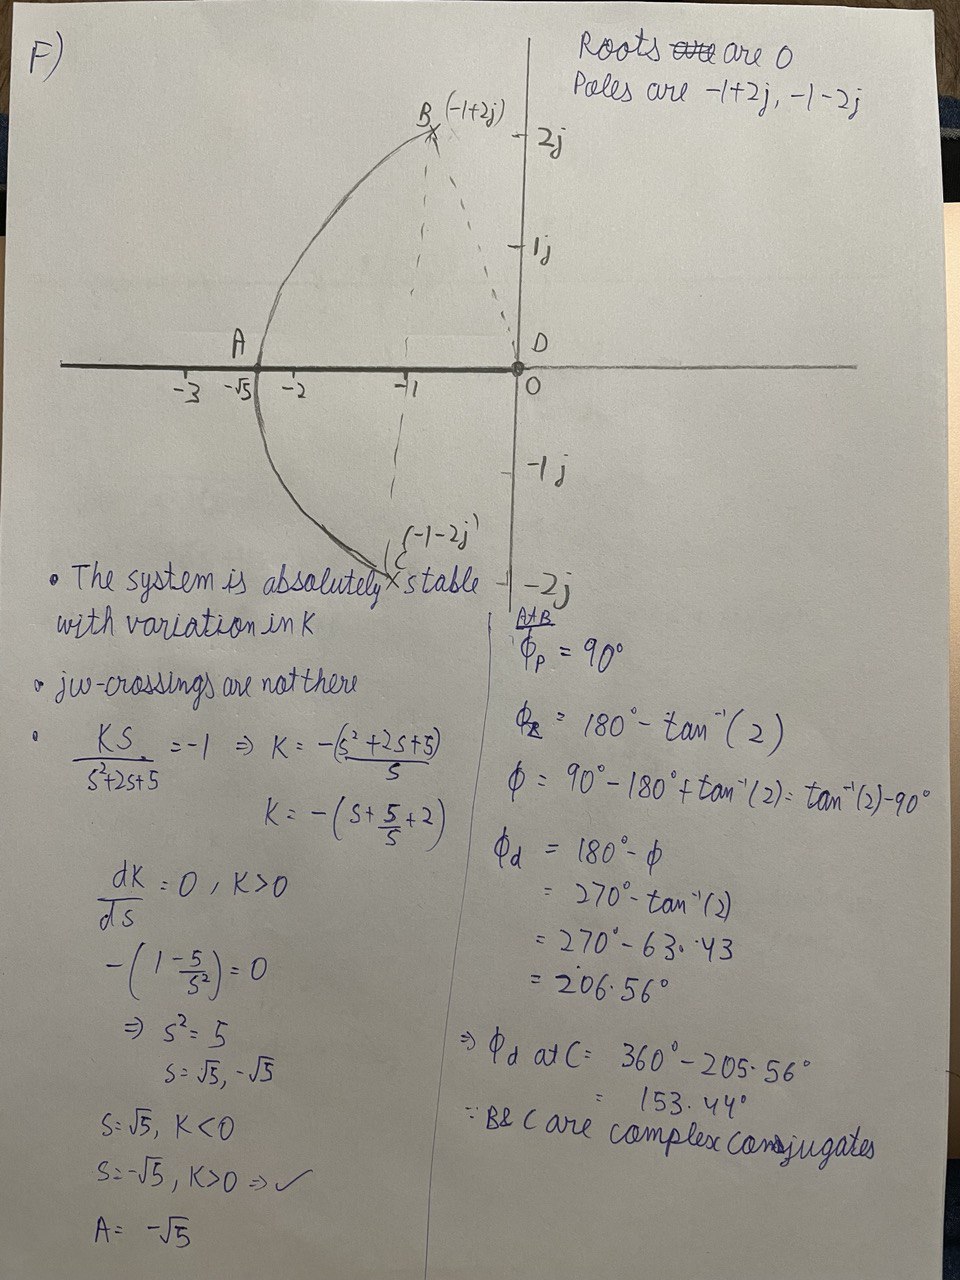 F)
Roots are are 0
Poles are -1+2j, -1-2j
B (-1+2j)
2j
1j
A
D
-3 -√5 -2 -1 0
-1j
(-1-2j)
C
-2j
• The system is absolutely stable
with variation in K
• jw-crossings are not there
• KS/(s²+2s+5) = -1 ⇒ K = -(s²+2s+5)/s
K = -(s+5/s+2)
dK/ds = 0, K>0
-(1-5/s²) = 0
⇒ s² = 5
s = √5, -√5
s=√5, K<0
s=-√5, K>0 ⇒ ✓
A = -√5
At B
ϕp = 90°
ϕz = 180° - tan⁻¹(2)
ϕ = 90° - 180° + tan⁻¹(2) = tan⁻¹(2) - 90°
ϕd = 180° - ϕ
= 270° - tan⁻¹(2)
= 270° - 63.43
= 206.56°
⇒ ϕd at C = 360° - 205.56°
= 153.44°
∵ B & C are complex conjugates